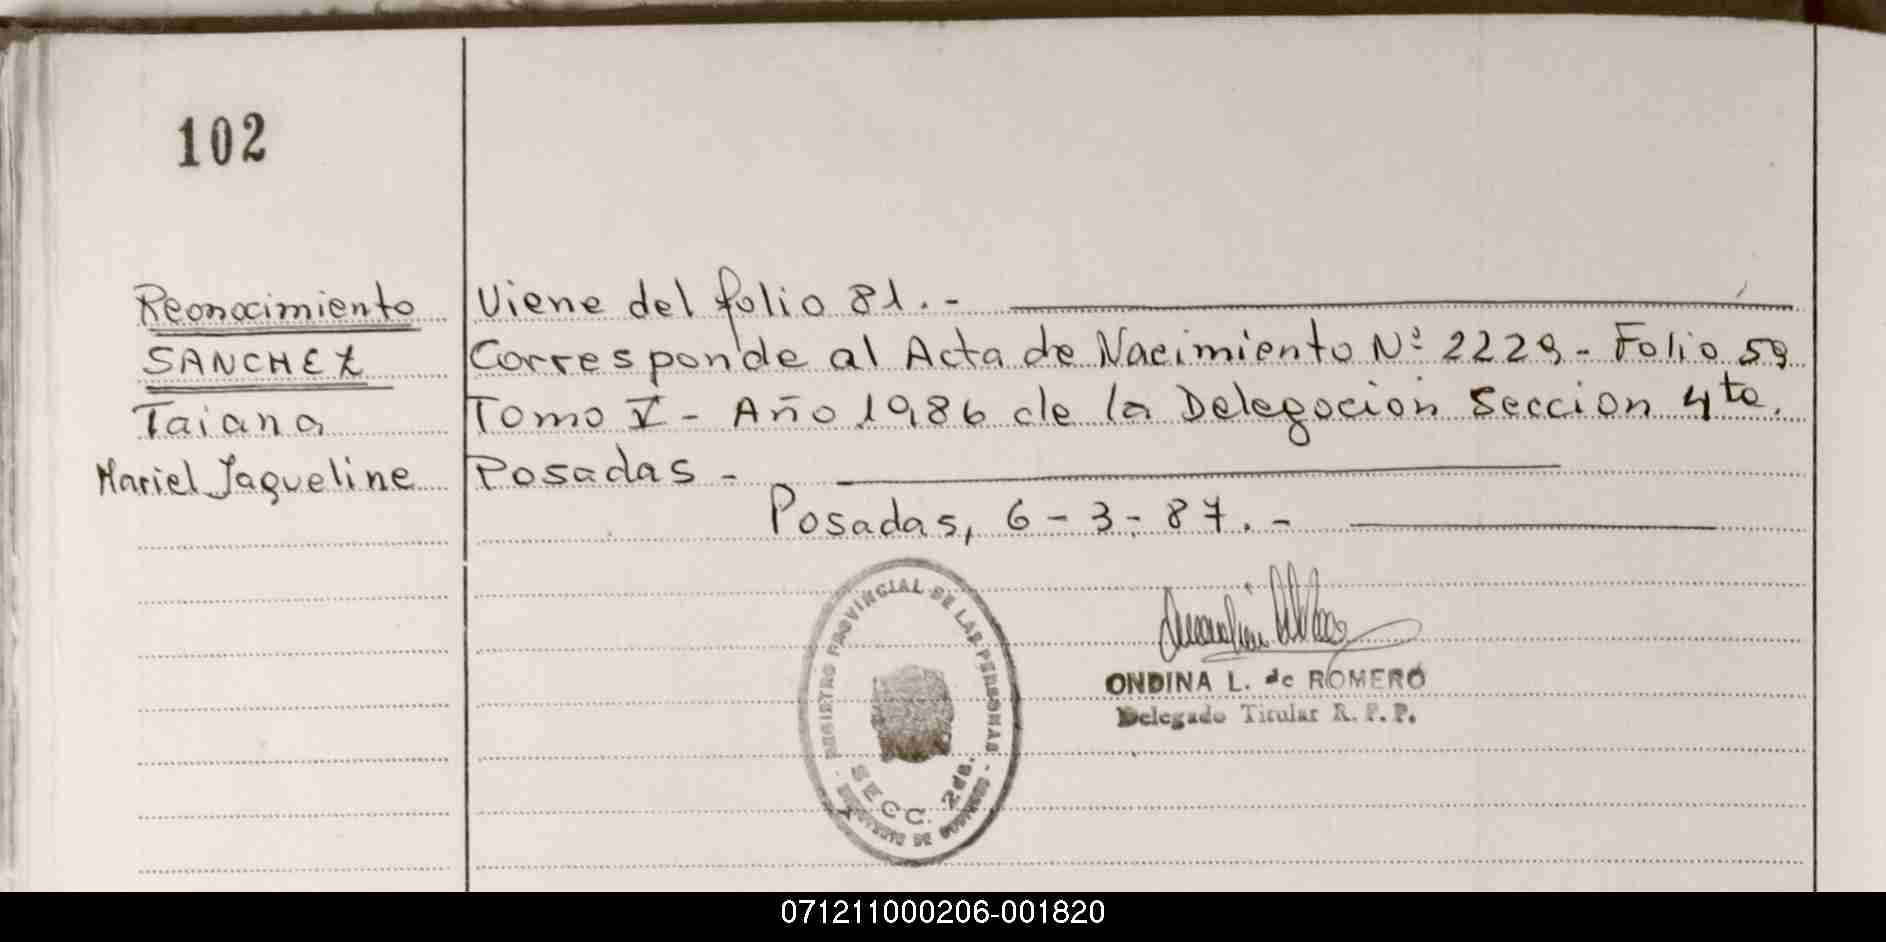 102
Reonocimiento
SANCHEZ
Taiana
Mariel Jaqueline
Viene del folio 81.-
Corresponde al Acta de Nacimiento Nº 2229 - Folio 59
Tomo V - Año 1986 de la Delegacion Seccion 4ta.
Posadas -
Posadas, 6 - 3 - 87. -
REGISTRO PROVINCIAL DE LAS PERSONAS
SECC. 2da.
MINISTERIO DE GOBIERNO
ONDINA L. de ROMERO
Delegado Titular R. P. P.
071211000206-001820